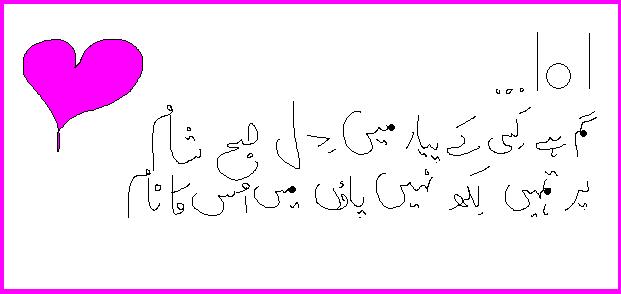 اہا...
گم ہے کسی کے پیار میں دل صبح شام
پر تمہیں لکھ نہیں پاؤں میں اُس کا نام